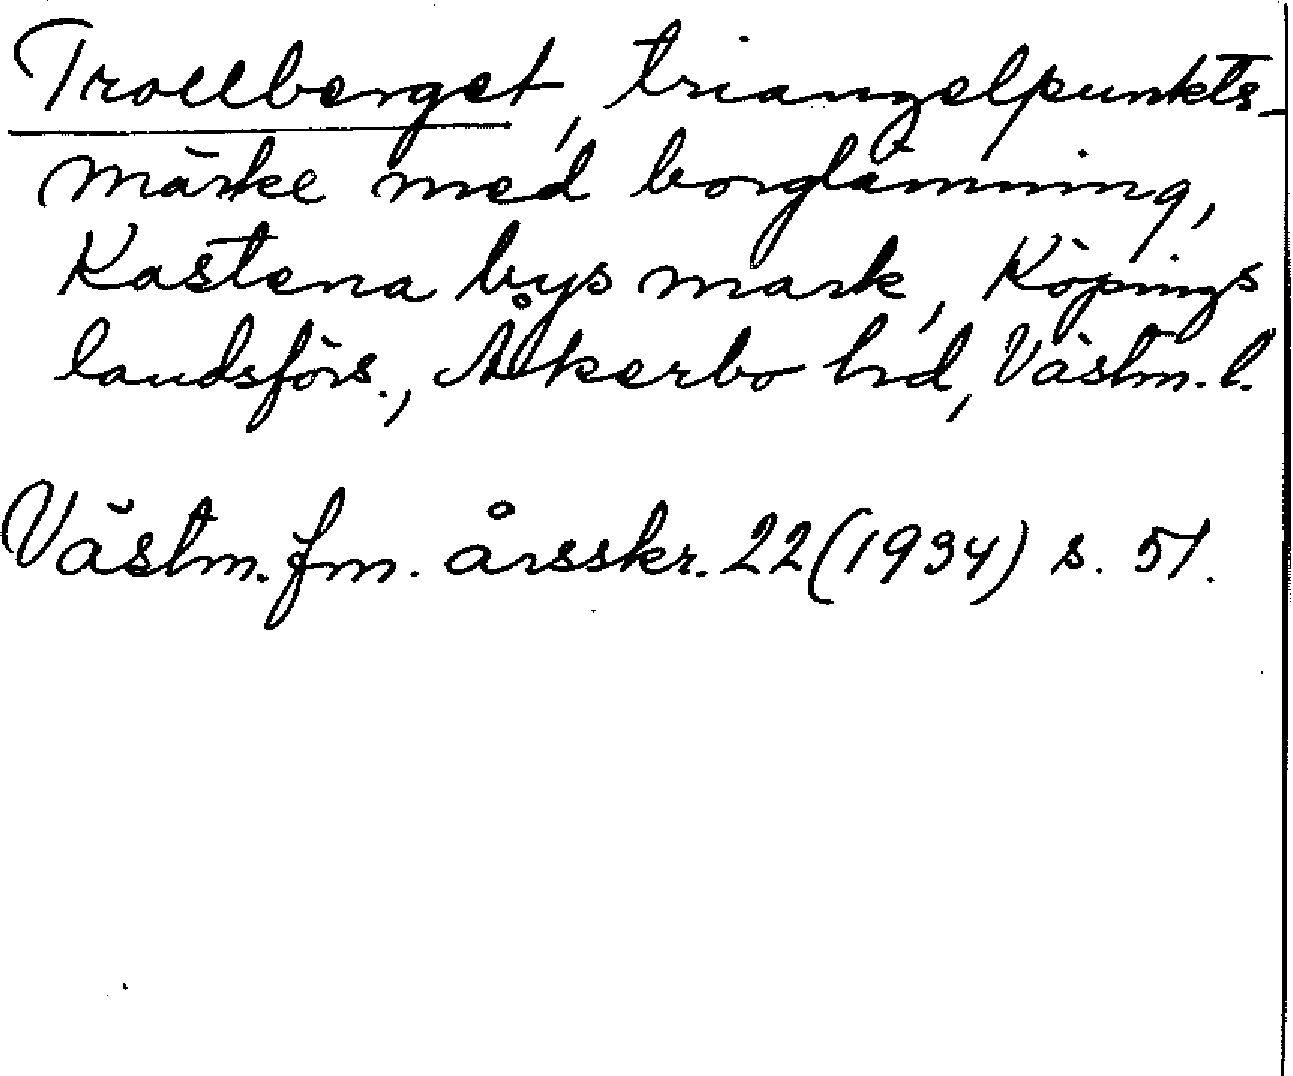 Trollberget, triangelpunkts-
märke med borglämning,
Kastena bys mark, Köpings
landsförs., Åkerbo hd, Västm. l.
Västm. fm. årsskr. 22 (1934) s. 51.